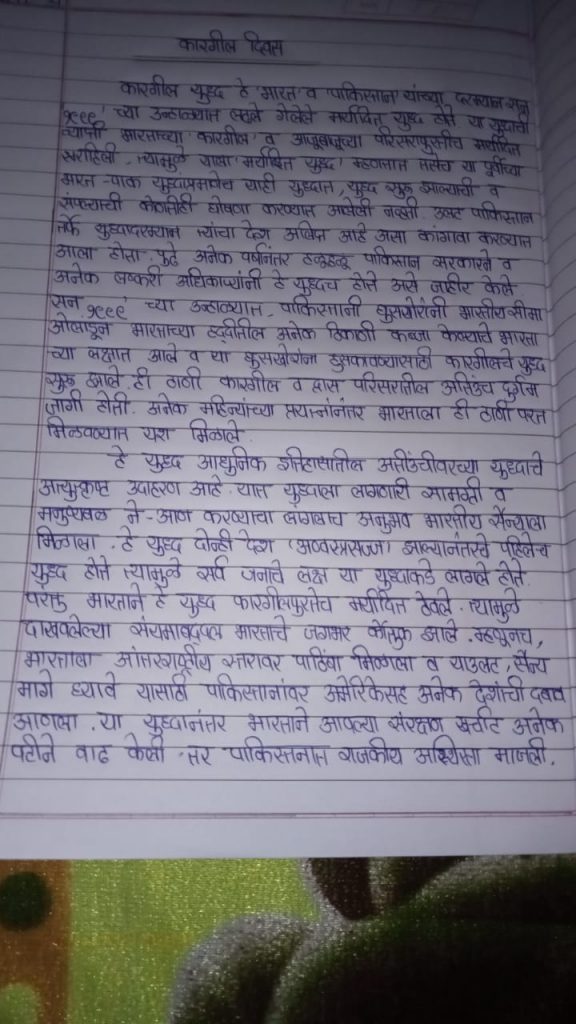 कारगील दिवस
कारगील युद्ध हे भारत व पाकिस्तान यांच्या दरम्यान सन
१९९९' च्या उन्हाळ्यात लढले गेलेले मर्यादित युद्ध होते या युद्धाची
व्याप्ती भारताच्या कारगील व आजूबाजूच्या परिसरापुरतीच मर्यादित
राहिली. त्यामुळे याला 'मर्यादित युद्ध' म्हणतात तसेच या पूर्वीच्या
भारत-पाक युद्धाप्रमाणेच याही युद्धात, युद्ध सुरू झाल्याची व
संपल्याची कोणतीही घोषणा करण्यात आलेली नव्हती. उलट पाकिस्तान
तर्फे युद्धादरम्यान त्यांचा देश अलिप्त आहे असा कांगावा करण्यात
आला होता. पुढे अनेक वर्षांनंतर हळूहळू पाकिस्तान सरकारने व
अनेक लष्करी अधिकाऱ्यांनी हे युद्धच होते असे जाहीर केले.
सन १९९९' च्या उन्हाळ्यात, पाकिस्तानी घुसखोरांनी भारतीय सीमा
ओलांडून भारताच्या हद्दीतील अनेक ठिकाणी कब्जा केल्याचे भारता
च्या लक्षात आले व या घुसखोरांना हुसकावण्यासाठी कारगीलचे युद्ध
सुरू झाले. ही ठाणी कारगील व द्रास परिसरातील अतिउंच दुर्गम
जागी होती. अनेक महिन्यांच्या प्रयत्नांनंतर भारताला ही ठाणी परत
मिळवण्यात यश मिळाले.
हे युद्ध आधुनिक इतिहासातील अतीउंचीवरच्या युद्धाचे
अत्युत्कृष्ट उदाहरण आहे. यात युद्धाला लागणारी सामग्री व
मनुष्यबळ ने-आण करण्याचा चांगलाच अनुभव भारतीय सैन्याला
मिळाला. हे युद्ध दोन्ही देश 'अण्वस्त्रसज्ज' झाल्यानंतरचे पहिलेच
युद्ध होते त्यामुळे सर्व जगाचे लक्ष या युद्धाकडे लागले होते.
परंतु भारताने हे युद्ध कारगीलपुरतेच मर्यादित ठेवले. त्यामुळे
दाखवलेल्या संयमाबद्दल भारताचे जगभर कौतुक झाले. म्हणूनच,
भारताला आंतरराष्ट्रीय स्तरावर पाठिंबा मिळाला व याउलट, सैन्य
मागे घ्यावे यासाठी पाकिस्तानांवर अमेरिकेसह अनेक देशांनी दबाव
आणला. या युद्धानंतर भारताने आपल्या संरक्षण खर्चात अनेक
पटीने वाढ केली. तर पाकिस्तनात राजकीय अस्थिरता माजली.